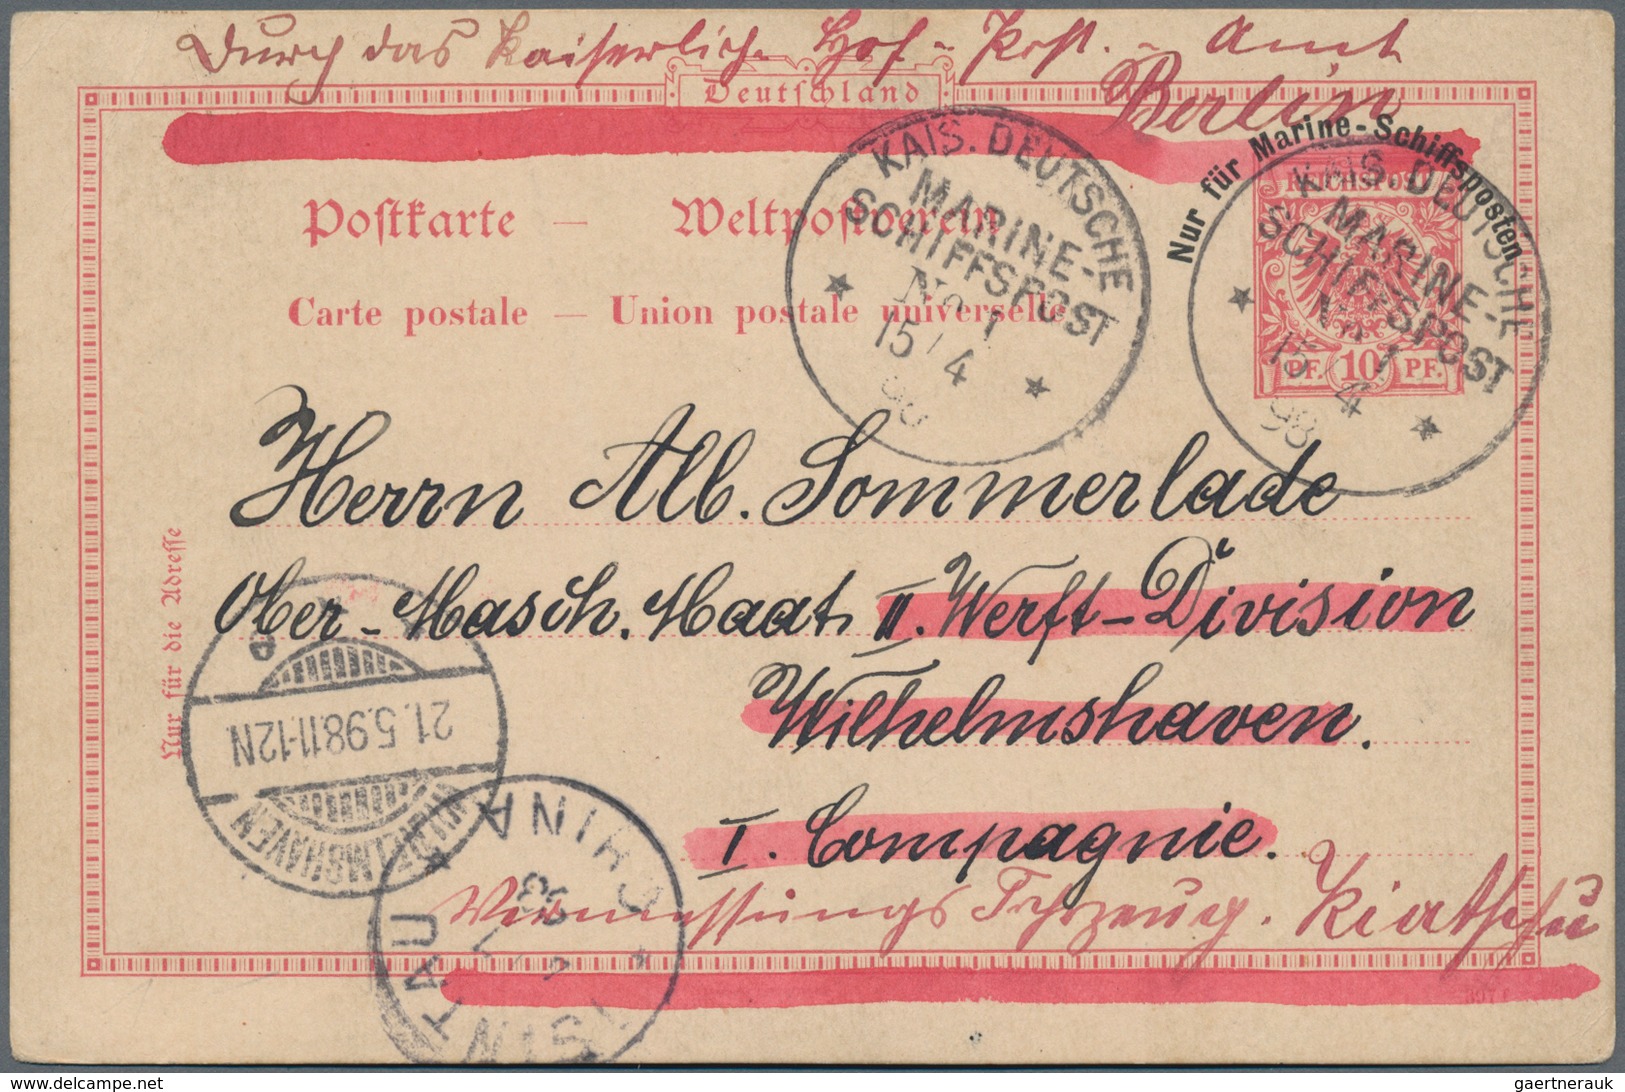 Durch das Kaiserliche Hof-Post-Amt
Berlin
Deutschland
Nur für Marine-Schiffsposten
REICHSPOST
PF. 10 PF.
KAIS. DEUTSCHE
MARINE-
SCHIFFSPOST
No 1
15/4
98
KAIS. DEUTSCHE
MARINE-
SCHIFFSPOST
No 1
15/4
98
Postkarte — Weltpostverein
Carte postale — Union postale universelle
Herrn Alb. Sommerlade
Ober-Masch. Maat. II. Werft-Division
Wilhelmshaven.
I. Compagnie.
Vermessungs Fahrzeug. Kiatschu
Nur für die Adresse
21.5.98.11-12N
WILHELMSHAVEN
TSINTAU
CHINA
98
gaertnerauk
www.delcampe.net